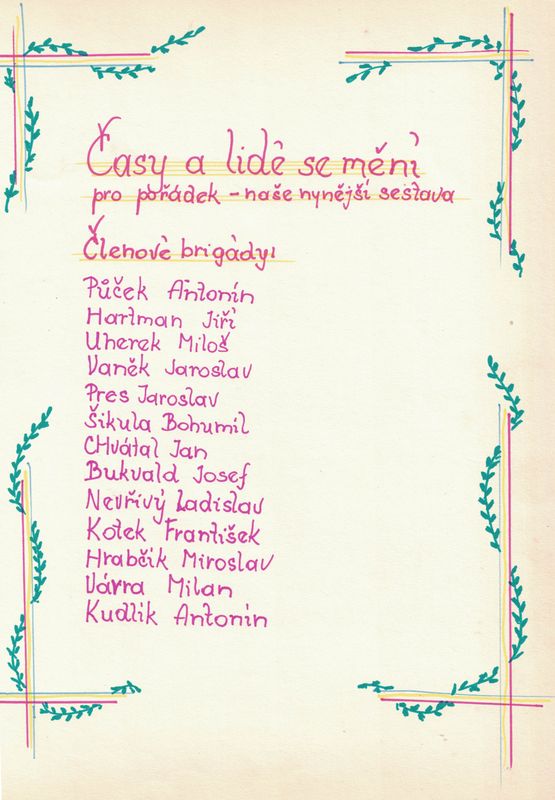 Časy a lidé se mění
pro pořádek - naše nynější sestava
Členové brigády:
Půček Antonín
Hartman Jiří
Uherek Miloš
Vaněk Jaroslav
Pres Jaroslav
Šikula Bohumil
CHvátal Jan
Bukvald Josef
Nevřivý Ladislav
Kotek František
Hrabčík Miroslav
Vávra Milan
Kudlik Antonín